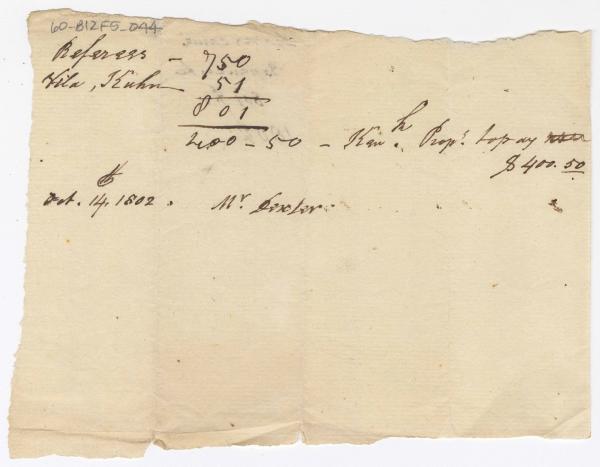 60-B12F5-D44
Referees - 750
Vila, Kuhn 51
801
400-50 - Ken h. Prop.s to pay
$400.50
Oct. 14. 1802. Mr Dexter.